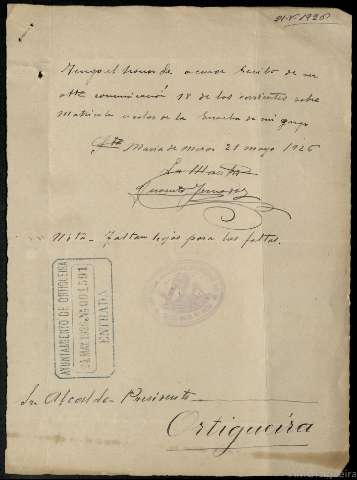 21-V-1926
Tengo el honor de acusar recibo de su
atta comunicación 18 de los corrientes sobre
Matrícula escolar de la Escuela de mi cargo
Sta María de Mera 21 mayo 1926
La Maestra
Nota - Faltan hojas para las faltas.
AYUNTAMIENTO DE ORTIGUEIRA
MAY. 1926 * No 001591
ENTRADA
Sr. Alcalde Presidente
Ortigueira